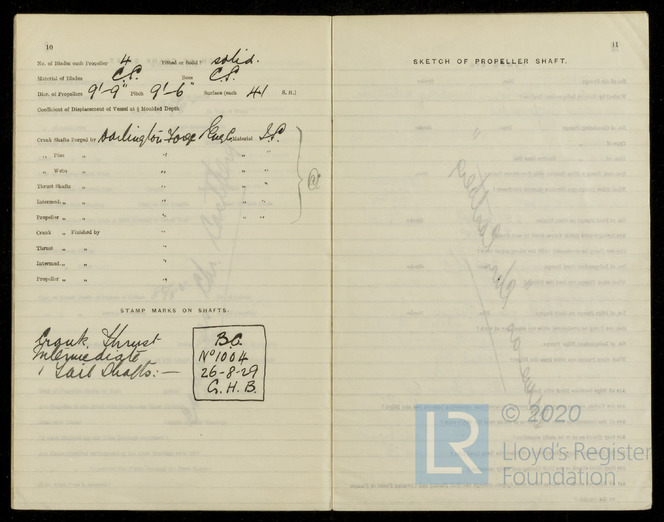 10
No. of Blades each Propeller 4 Fitted or Solid? solid.
Material of Blades Boss
Diar. of Propellers 9'-9" Pitch 9'-6" Surface (each 41 S. ft.)
Coefficient of Displacement of Vessel at ⅘ Moulded Depth
Crank Shafts Forged by Darlington Forge Material
„ Pins „ „ „ „
„ Webs „ „ „ „
Thrust Shafts „ „ „ „
Intermed. „ „ „ „ „
Propeller „ „ „ „ „
Crank „ Finished by „
Thrust „ „ „
Intermed. „ „ „
Propeller „ „ „
STAMP MARKS ON SHAFTS.
Crank. Thrust
Intermediate
Tail Shafts:—
B.C.
No 1004
26-8-29
G. H. B.
11
SKETCH OF PROPELLER SHAFT.
LR
© 2020
Lloyd's Register
Foundation